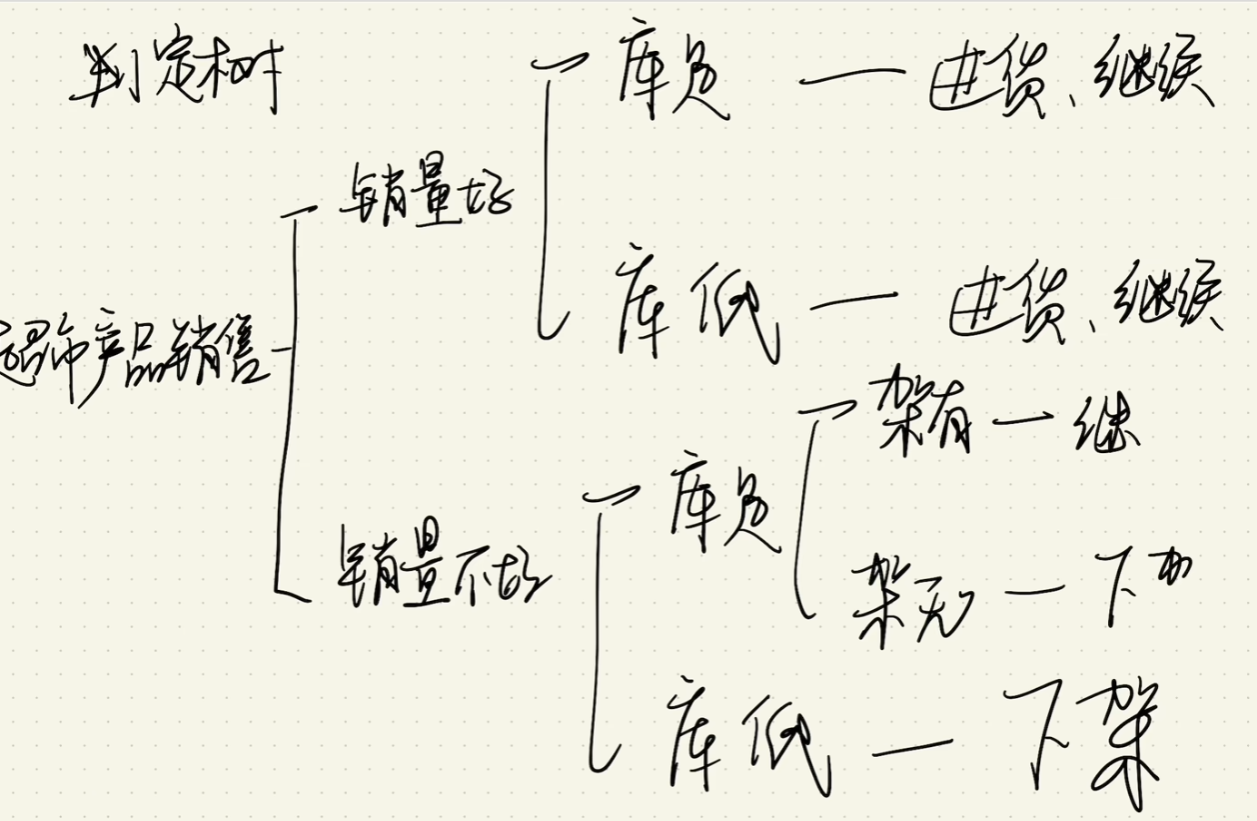 判定树
库足 — 进货、继续
销量好
库低 — 进货、继续
超市产品销售
架有 — 继
库足
销量不好
架无 — 下
库低 — 下架